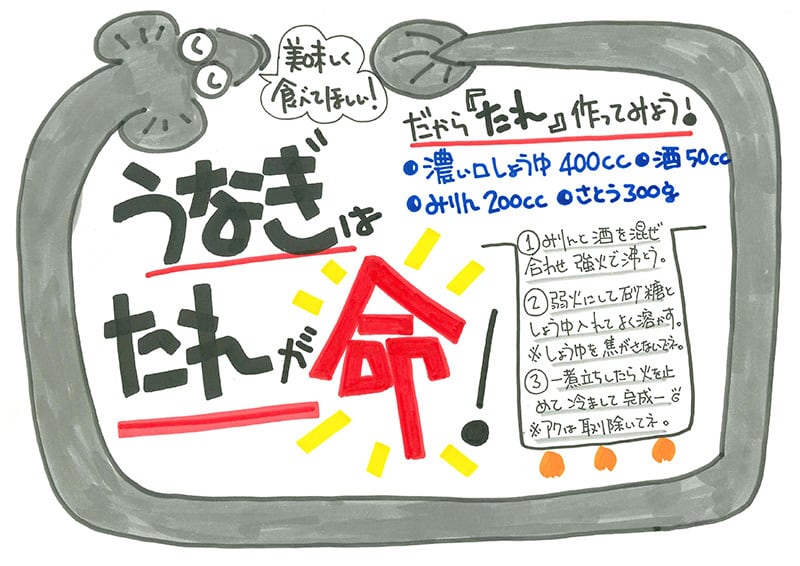 美味しく
食べてほしい!
うなぎは
たれが命!
だから『たれ』作ってみよう!
●濃い口しょうゆ400cc ●酒50cc
●みりん200cc ●さとう300g
①みりんと酒を混ぜ
合わせ強火で沸とう。
②弱火にして砂糖と
しょうゆ入れてよく溶かす。
※しょうゆを焦がさないでネ。
③一煮立ちしたら火を止
めて冷まして完成ー
※アクは取り除いてネ。